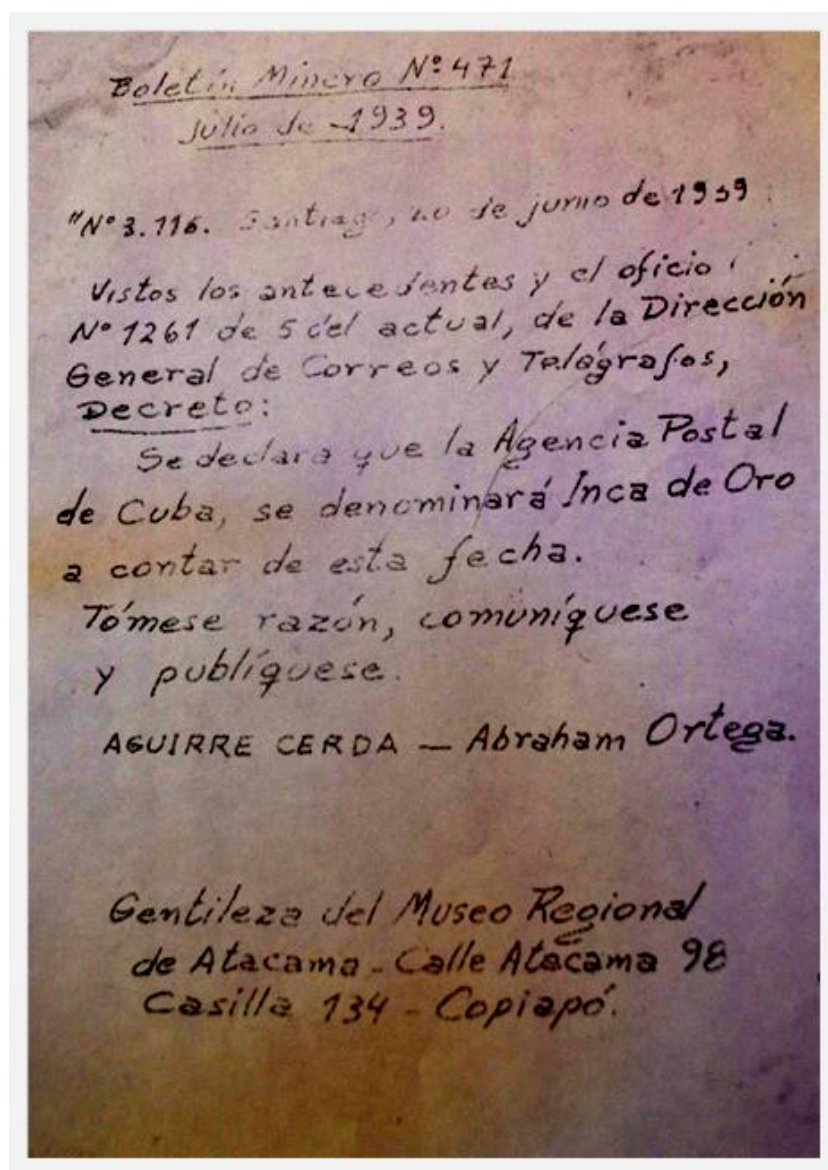 Boletín Minero Nº 471
Julio de 1939.
"Nº 3.116. Santiago, 20 de junio de 1939
Vistos los antecedentes y el oficio
Nº 1261 de 5 del actual, de la Dirección
General de Correos y Telégrafos,
Decreto:
Se declara que la Agencia Postal
de Cuba, se denominará Inca de Oro
a contar de esta fecha.
Tómese razón, comuníquese
y publíquese.
AGUIRRE CERDA — Abraham Ortega.
Gentileza del Museo Regional
de Atacama - Calle Atacama 98
Casilla 134 - Copiapó.